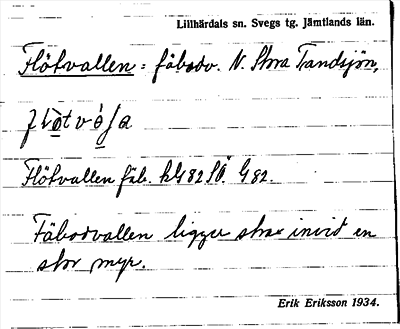 Lillhärdals sn. Svegs tg. Jämtlands län.
Flötvallen: fäbodv. N. Stora Tandsjön,
Flötvallen fäb.
Fäbodvallen ligger strax invid en
stor myr.
Erik Eriksson 1934.